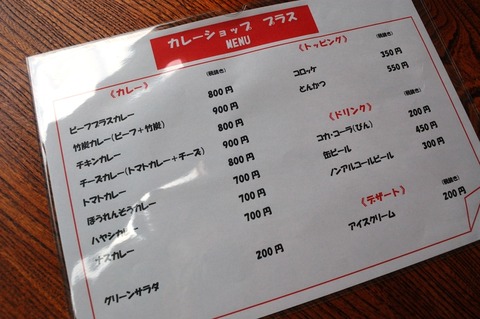 カレーショップ プラス
MENU
《カレー》 (税抜き)
ビーフプラスカレー 800円
竹炭カレー(ビーフ+竹炭) 900円
チキンカレー 800円
チーズカレー(トマトカレー+チーズ) 900円
トマトカレー 800円
ほうれんそうカレー 700円
ハヤシカレー 700円
ナスカレー 700円
グリーンサラダ 200円
《トッピング》 (税抜き)
コロッケ 350円
とんかつ 550円
《ドリンク》 (税抜き)
コカ・コーラ(びん) 200円
缶ビール 450円
ノンアルコールビール 300円
《デザート》 (税抜き)
アイスクリーム 200円